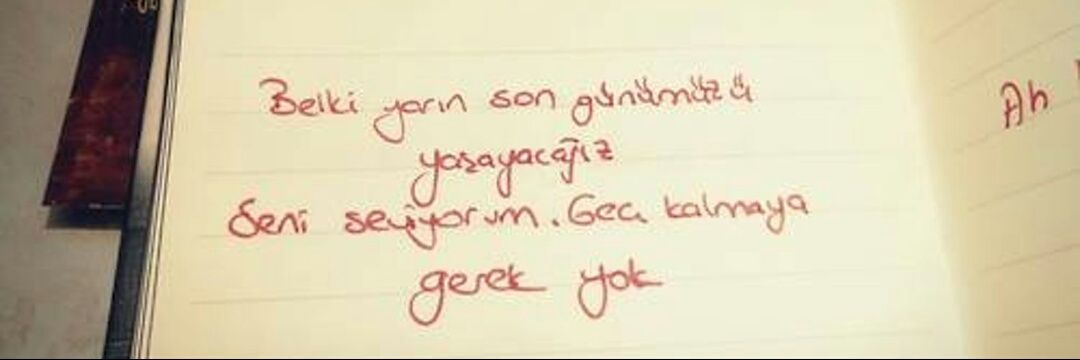 Belki yarın son günümüzü
yaşayacağız
Seni seviyorum. Geç kalmaya
gerek yok
Ah